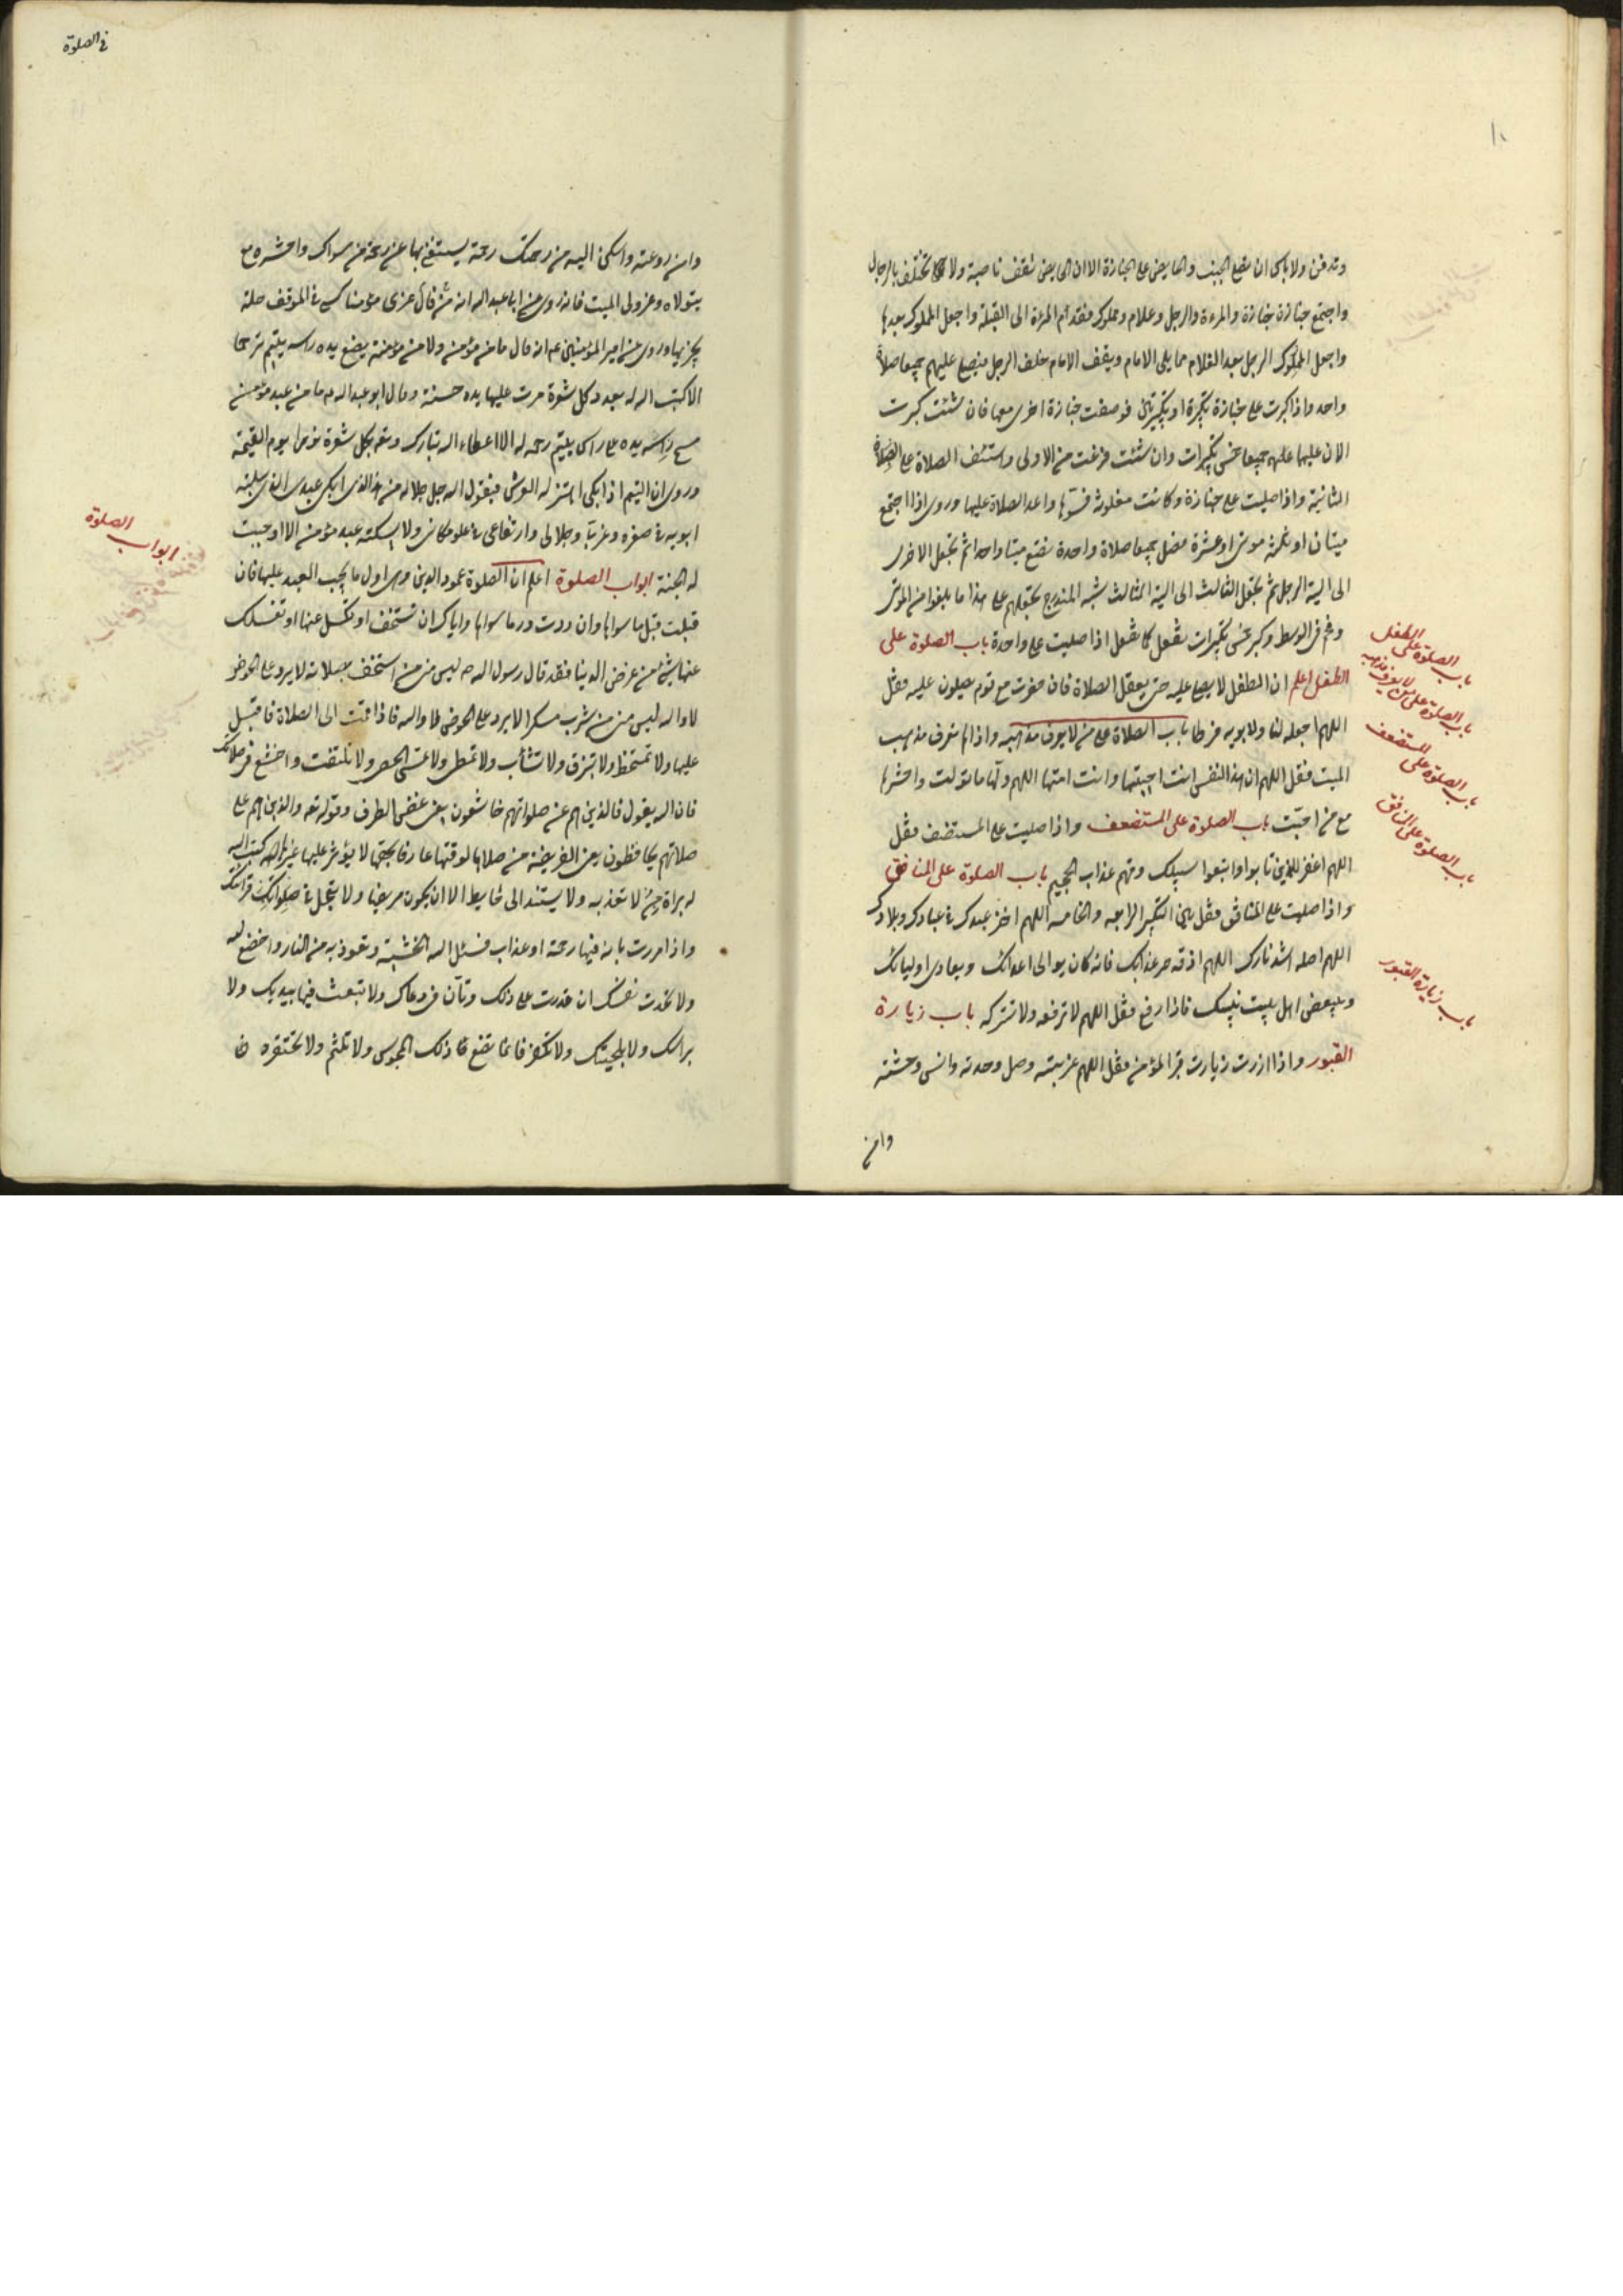 وقد دفن ولا باس ان يصلي الجنب والحايض على الجنازة الا ان الحايض تقف ناحية ولا تختلف بالرجال
واجتمع جنازة جنازة والمرءة والرجل وغلام ومملوك فقدم المرءة الى القبلة واجعل المملوك بعدها
واجعل المملوك الرجل بعد الغلام مما يلى الامام ويقف الامام خلف الرجل فيصلي عليهم جميعا صلاة
واحد واذا كبرت على جنازة تكبيرة او تكبيرتين فوضعت جنازة اخرى معها فان شئت كبرت
الان عليهما جميعا خمس تكبيرات وان شئت فرغت من الاولى واستئنف الصلاة على
الثانية واذا صليت على جنازة وكانت مقلوبة فسوها واعد الصلاة عليها وروى اذا اجتمع
ميتان او ثلثة موتى او عشرة فصل جميعا صلاة واحدة تضع ميتا واحدا ثم تجعل الاخرى
الى الية الرجل ثم تجعل الثالث الى الية الثالث شبه المندرج تجعلهم على هذا ما بلغوا من الموتى
وقم فى الوسط وكبر خمس تكبيرات تفعل كما تفعل اذا صليت على واحدة باب الصلوة على
الطفل اعلم ان الطفل لا يصلى عليه حتى يعقل الصلاة فان حضرت مع قوم يصلون عليه فقل
اللهم اجعله لنا ولابويه فرطا باب الصلاة على من لا يعرف مذهبه واذا لم تعرف مذهب
الميت فقل اللهم ان هذا النفس انت احييتها وانت امتها اللهم ولها ما تولت واحشرها
مع من احبت باب الصلوة على المستضعف واذا صليت على المستضعف فقل
اللهم اغفر للذين تابوا واتبعوا سبيلك وقهم عذاب الجحيم باب الصلوة على المنافق
واذا صليت على المنافق فقل بين التكبير الرابعه والخامسه اللهم اخز عبدك فى عبادك وبلادك
اللهم اصله اشد نارك اللهم اذقه حر عذابك فانه كان يوالى اعدائك ويعادى اوليائك
ويبغض اهل بيت نبيك فاذا رفع فقل اللهم لا ترفعه ولا تزكه باب زيارة
القبور واذا زرت زيارت قبر المؤمن فقل اللهم غربته وصل وحدته وانس وحشته
وامن
باب الصلوة على الطفل
باب الصلوة على من لا يعرف مذهبه
باب الصلوة على المستضعف
باب الصلوة على المنافق
باب زيارة القبور
فى الصلوة
وامن روعته واسكن اليه من رحمتك رحمة يستغنى بها عن رحمة من سواك واحشره مع
يتولاه وعز ولى الميت فانه روى عن ابا عبد الله انه من عزى مؤمنا كسى فى الموقف حلة
يجزيها وروى عن امير المؤمنين انه قال ما من مؤمن ولا من مؤمنة يضع يده راس يتيم ترحما
الا كتب الله له بعدد كل شعرة مرت عليها يده حسنة وقال ابو عبد الله ما من عبد مؤمن
مسح راسه يده على راس يتيم رحمه له الا اعطاه الله تبارك وتعه بكل شعرة نورا يوم القيمة
وروى ان اليتيم اذا بكى اهتز له العرش فيقول الله جل جلاله من هذا الذى ابكى عبدى الذى سلبته
ابويه فى صغره وعزتى وجلالى وارتفاعى فى علو مكانى ولا اسكته عبد مؤمن الا اوجبت
له الجنة ابواب الصلوة اعلم ان الصلوة عمود الدين وهى اول ما يجب العبد عليها فان
قبلت قبل ما سواها وان ردت رد ما سواها واياك ان تستخف او تكسل عنها او تغسلك
عنها شئ من عرض الدنيا فقد قال رسول الله ص ليس منى من استخف بصلاته لا يرد على الحوض
لا والله ليس منى من شرب مسكرا لا يرد على الحوض لا والله فاذا قمت الى الصلاة فاقبل
عليها ولا تمتخط ولا تبزق ولا تتثأب ولا تمطى ولا تمس الحصى ولا تلتفت واخشع فى صلاتك
فان الله يقول فالذين هم عن صلواتهم خاشعون يعنى غض الطرف وقوله تعه والذين هم على
صلاتهم يحافظون يعنى الفريضة من صلاها لوقتها عارفا بحقها لا يؤثر عليها غيرها كتب الله
له براءة لا تعذبه ولا يستند الى حايط الا ان يكون مريضا ولا تعجل فى صلواتك قرائتك
واذا مررت باية فيها رحمة او عذاب فسئل الله الخشية وتعوذ به من النار واخضع له
ولا تحدث نفسك ان قدرت على ذلك وتأن فى دعاك ولا تعبث فيها بيديك ولا
براسك ولا بلحيتك ولا تكفر فانما تصنع ذلك المجوس ولا تلثم ولا تحتفزه
ابواب الصلوة